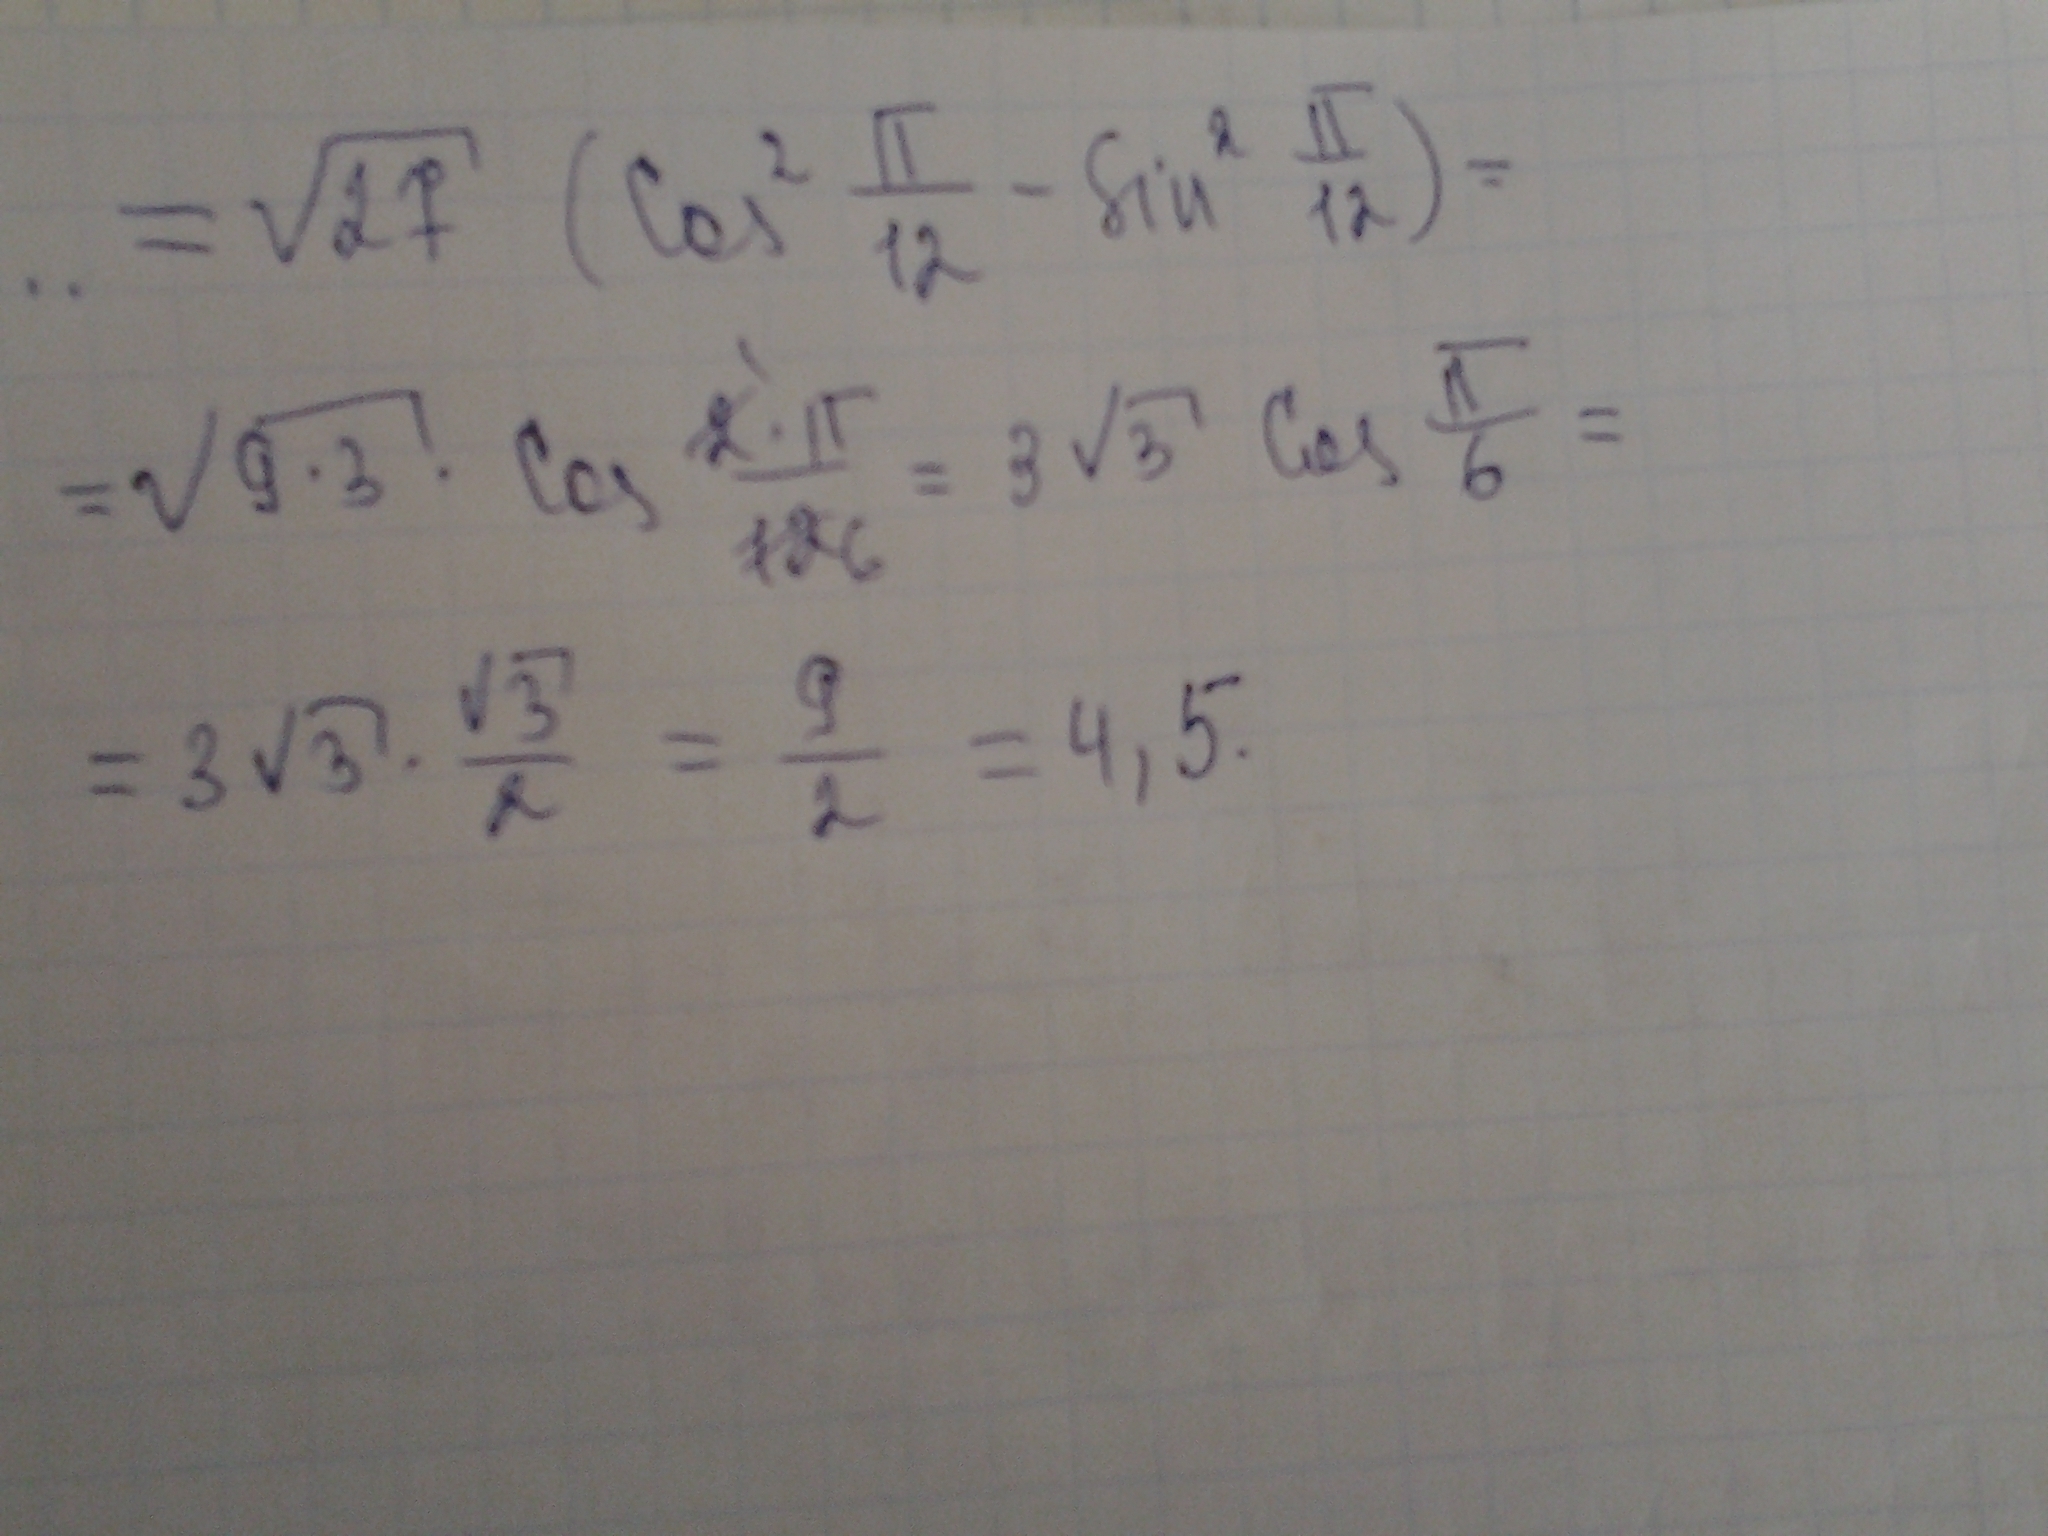 .. = √27 (Cos² π/12 - Sin² π/12) =
= √9·3 · Cos 2·π/12 6 = 3√3 Cos π/6 =
= 3√3 · √3/2 = 9/2 = 4,5.